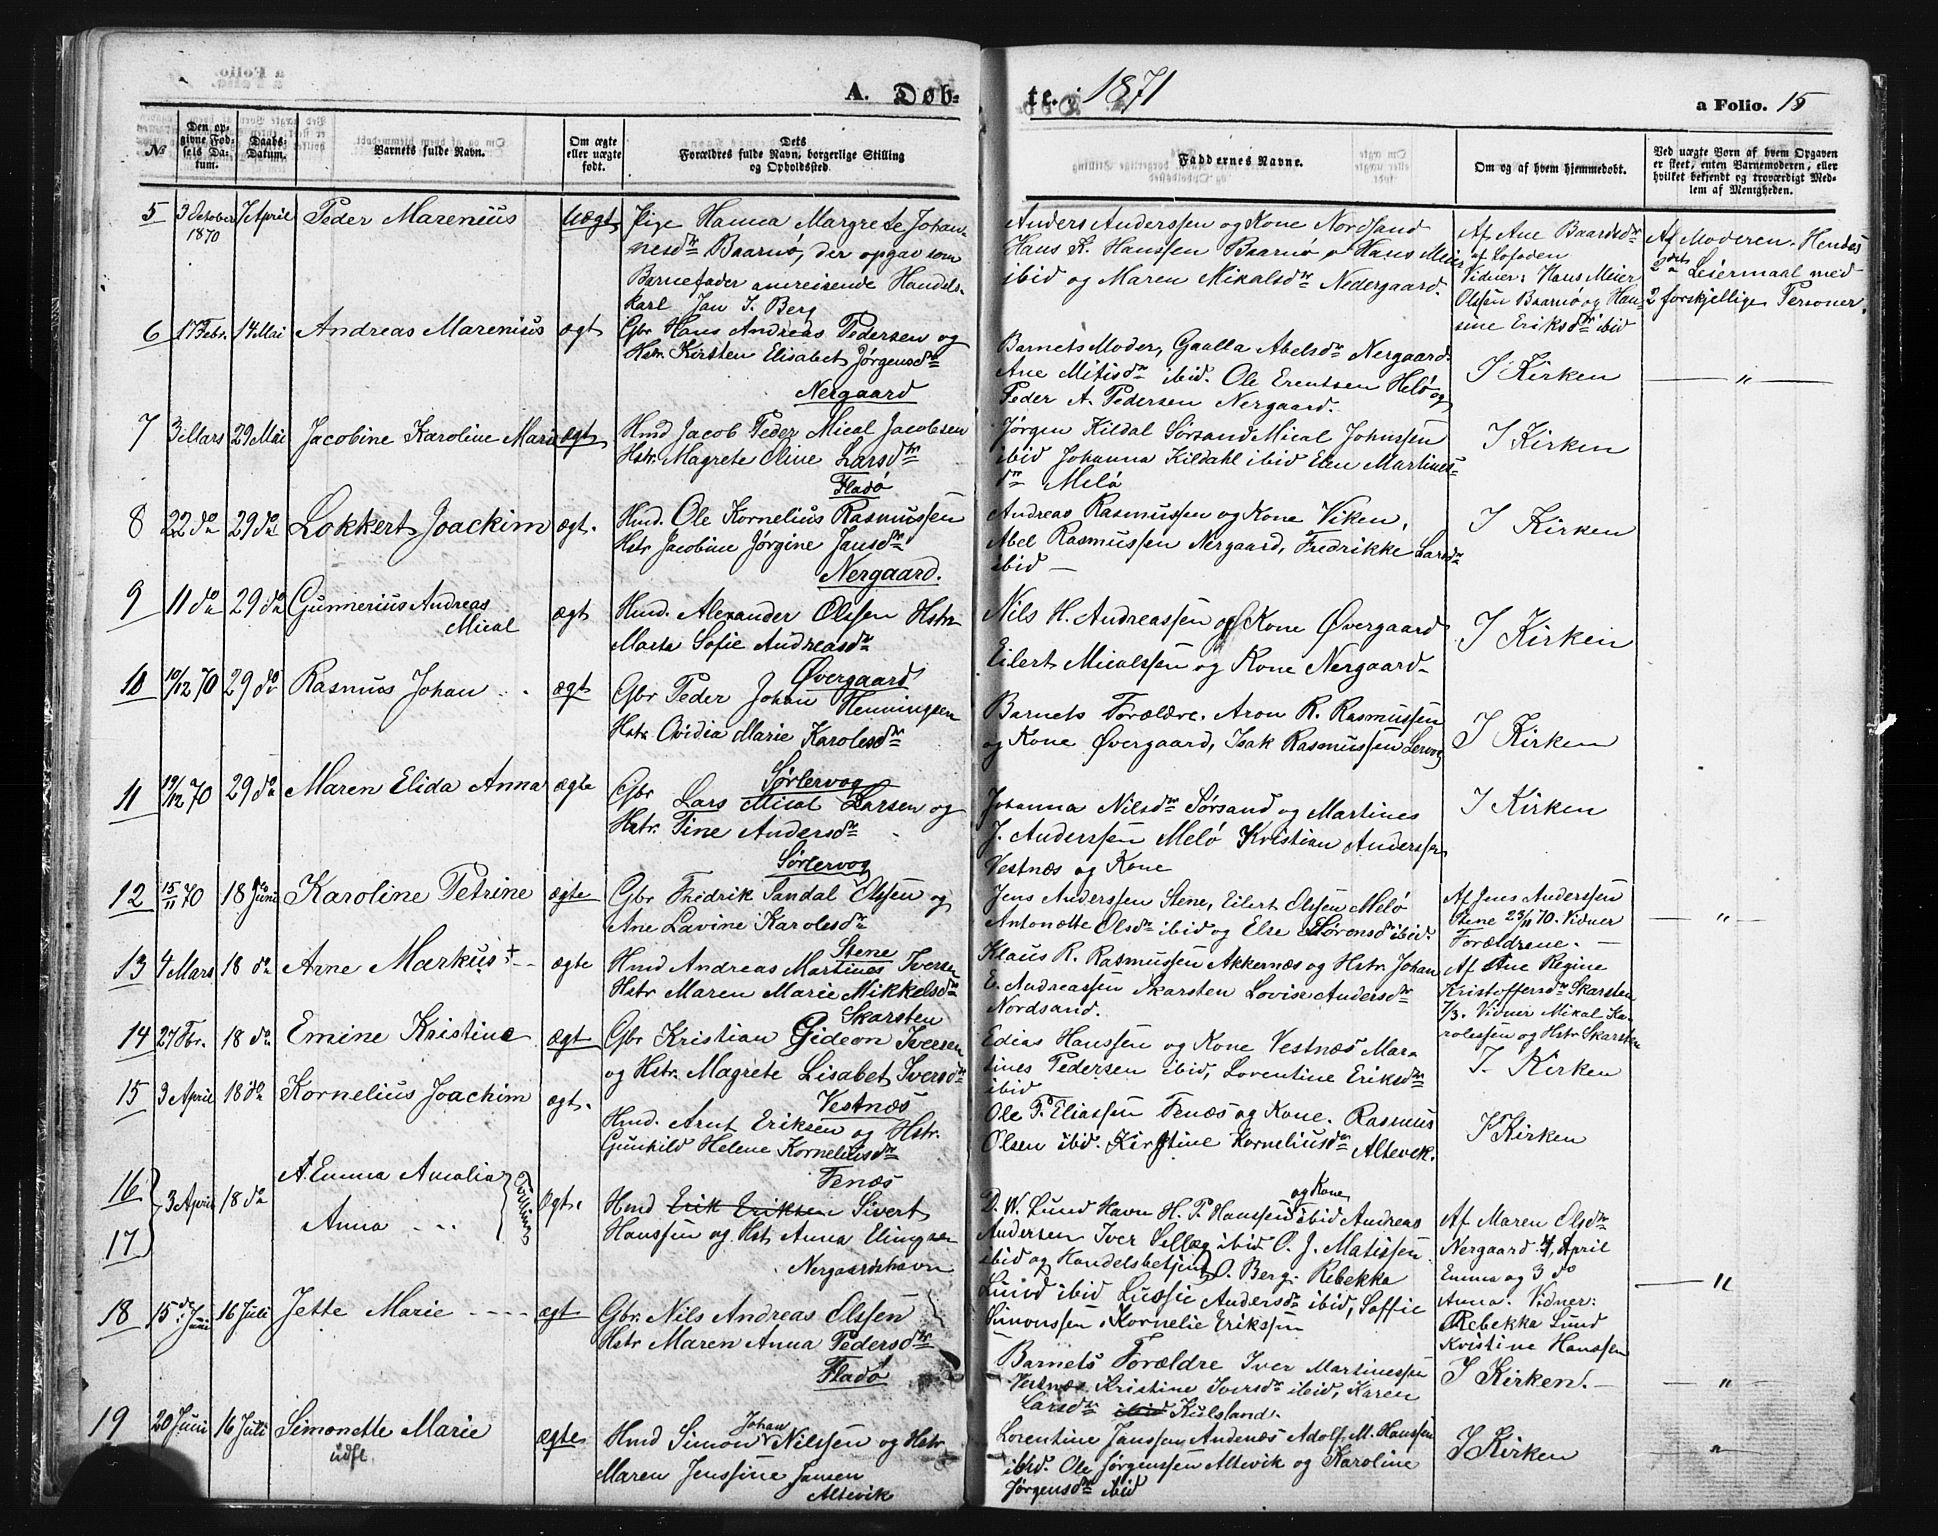 A. Døb-
te. i 1871
a Folio. 15
№
Den op-
givne Fød-
sels Da-
tum.
Daabs-
Datum.
Barnets fulde Navn.
Om ægte
eller uægte
født.
Dets
Forældres fulde Navn, borgerlige Stilling
og Opholdssted.
Faddernes Navne.
Om og af hvem hjemmedøbt.
Ved uægte Børn af hvem Opgaven
er skeet, enten Barnemoderen, eller
hvilket bekjendt og troværdigt Med-
lem af Menigheden.
5
3 October
1870
7 April
Peder Marenius
Uægt
Pige Hanna Margrete Johan-
nesdtr Baarnø, der opgav som
Barnefader anreisende Handels-
karl Jan I. Berg
Anders Anderssen og Kone Nordsand
Hans A. Hanssen Baarnø o Hans Meier
ibid og Maren Mikalsdtr Nedergaard.
Af Ane Baardsdtr
af Lofoden
Vidner: Hans Meier
Olssen Baarnø og Han-
sine Eriksdtr ibid
Af Moderen. Hendes
2det Leiermaal med
2 forskjellige Personer.
6
17 Febr.
14 Mai
Andreas Marenius
ægt
Gbr Hans Andreas Pedersen og
Hstr. Kirsten Elisabet Jørgensdtr
Nergaard
Barnets Moder, Gaalla Abelsdtr Nergaard.
Ane Mitisdtr ibid. Ole Erentsen Helø og
Peder A. Pedersen Nergaard.
I Kirken
— " —
7
3 Mars
29 Mai
Jacobine Karoline Marie
ægt
Hmd Jacob Peder Mical Jacobsen
Hstr. Magrete Oline Larsdtr
Fladø
Jørgen Kildal Sørsand Mical Johnssen
ibid Johanna Kildahl ibid Elen Martines-
dtr Melø
I Kirken
8
22 do
29 do
Lokkert Joachim
ægt.
Hmd. Ole Kornelius Rasmussen
Hstr Jacobine Jørgine Jansdtr
Nergaard.
Andreas Rasmussen og Kone Viken,
Abel Rasmussen Nergaard, Fredrikke Larsdtr
ibid —
I Kirken
9
11 do
29 do
Gunnerius Andreas
Mical
ægt
Hmd. Alexander Olssen Hstr
Marta Sofie Andreasdtr
Øvergaard
Nils H. Andreassen og Kone Øvergaard
Eilert Micalssen og Kone Nergaard-
I Kirken
10
10/12 70
29 do
Rasmus Johan
ægt
Gbr Peder Johan Henningsen
Hstr Ovidia Marie Karolesdtr
Sørlervog
Barnets Forældre. Aron R. Rasmussen
og Kone Øvergaard, Isak Rasmussen Lervog
I Kirken
11
19/12 70
29 do
Maren Elida Anna
ægte
Gbr Lars Mical Larsen og
Hstr. Tine Andersdtr
Sørlervog
Johanna Nilsdtr Sørsand og Martines
J. Anderssen Melø Kristian Anderssen
Vestnæs og Kone
I Kirken
12
15/11 70
18 Juni
Karoline Petrine
ægte
Gbr Fredrik Sandal Olssen og
Ane Lavine Karolesdtr
Stene
Jens Anderssen Stene, Eilert Olssen Melø
Antonætte Olsdtr ibid og Else Sørensd ibid.
Af Jens Anderssen
Stene 23/11 70. Vidner
Forældrene. —
— " —
13
4 Mars
18 do
Arne Markus +
ægte
Hmd Andreas Martines Iversen
Hstr Maren Marie Mikkelsdtr
Skarsten
Klaus R. Rasmussen Akkernæs og Hstr. Johan
E. Andreassen Skarsten Lovise Andersdtr
Nordsand.
Af Ane Regine
Kristoffersdtr Skarsten
7/3. Vidner Mikal Ka-
rolessen og Hstr Skarsten
14
27 Fbr.
18 do
Emine Kristine
ægt
Gbr Kristian Gideon Iversen
og Hstr. Magrete Lisabet Iversdtr
Vestnæs
Edias Hanssen og Kone Vestnæs Mar-
tines Pedersen ibid, Lorentine Eriksdtr
ibid
I Kirken
15
3 April
18 do
Kornelius Joachim
ægt.
Hmd. Arnt Eriksen og Hstr.
Gunhild Helene Korneliusdtr
Fenæs
Ole P. Eliassen Fenæs og Kone. Rasmus
Olsen ibid. Kirstine Korneliusdtr Altevik.
I Kirken
16
17
3 April
18 do
A. Emma Amalia
Anna
Tvillinger
Ægt.
Hmd Erik Eriksen Sivert
Hanssen og Hst. Anna Elingsen
Nergaardshavn
og Kone
D. W. Lund Havn H. P. Hanssen ibid Andreas
Andersen Iver Selleg ibid O. J. Matissen
ibid og Handelsbetjent O. Berg. Rebekka
Lund ibid Lussie Andersdtr ibid, Soffie
Simonssen, Kornelie Eriksen
Af Maren Olsdtr
Nergaard 4 April
Emma og 3 do
Anna. Vidner:
Rebekka Lund
Kristine Hanssen
— " —
18
15de Juni
16 Juli
Jette Marie
ægt
Gbr. Nils Andreas Olssen
Hstr Maren Anna Pedersdtr
Fladø
Barnets Forældre Iver Martinessen
Vestnæs Kristine Iversdtr ibid, Karen
Larsdtr ibid Kulsland.
I Kirken. —
— " —
19
20 Juni
16 Juli
Simonette Marie
udfl.
ægte
Johan
Hmd Simon Nilssen og Hstr
Maren Jenssine Jansen
Altevik
Lorentine Janssen Andenæs Adolf M. Hanssen
ibid. Ole Jørgenssen Altevik og Karoline
Jørgensdtr ibid
I Kirken
"